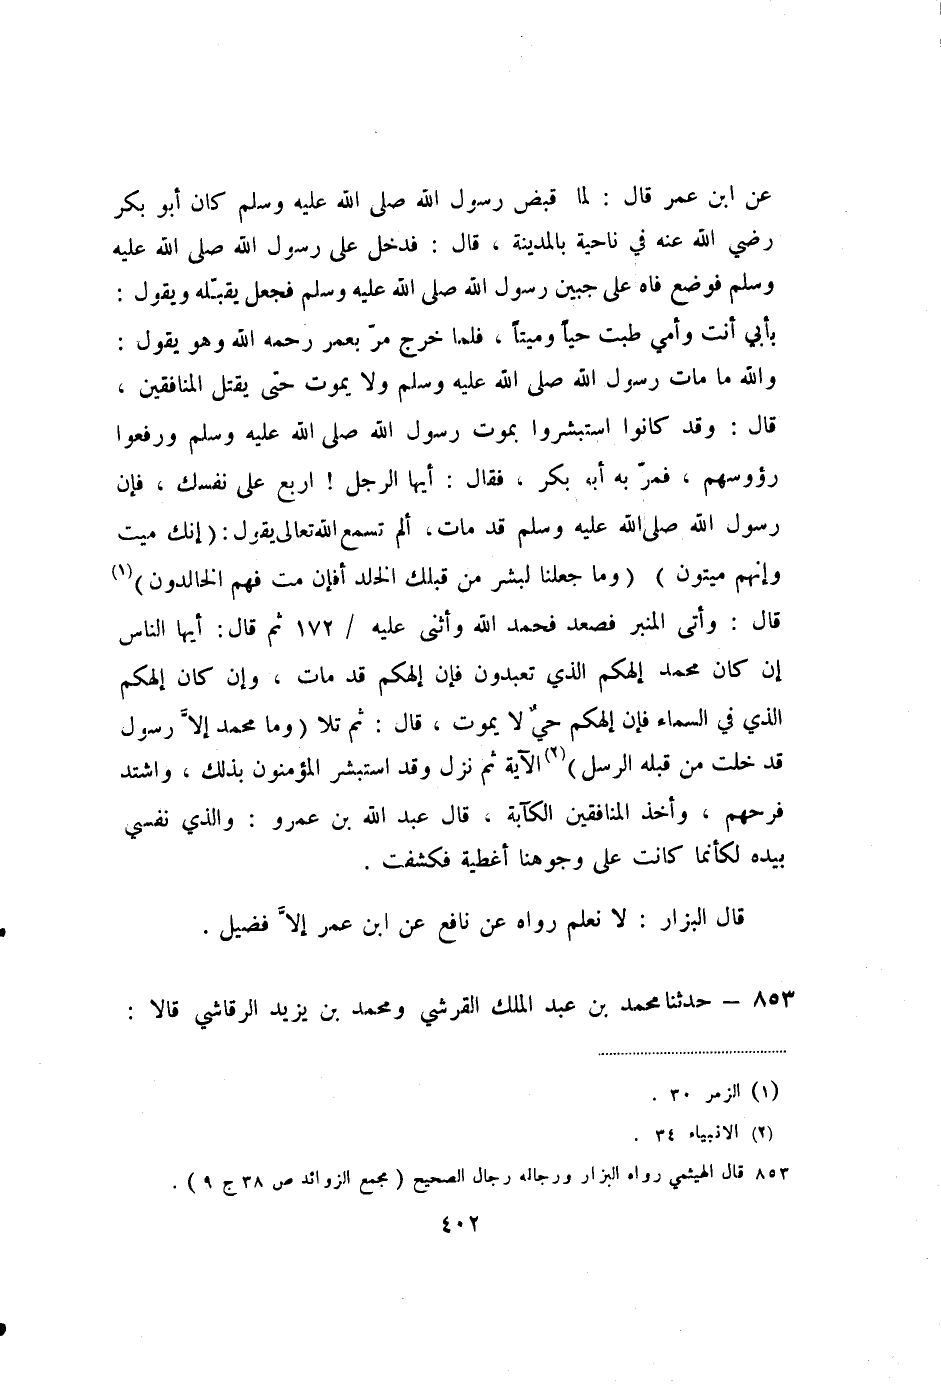 عن ابن عمر قال : لما قبض رسول الله صلى الله عليه وسلم كان أبو بكر
رضي الله عنه في ناحية بالمدينة ، قال : فدخل على رسول الله صلى الله عليه
وسلم فوضع فاه على جبين رسول الله صلى الله عليه وسلم فجعل يقبّله ويقول :
بأبي أنت وأمي طبت حياً وميتاً ، فلما خرج مرّ بعمر رحمه الله وهو يقول :
والله ما مات رسول الله صلى الله عليه وسلم ولا يموت حتى يقتل المنافقين ،
قال : وقد كانوا استبشروا بموت رسول الله صلى الله عليه وسلم ورفعوا
رؤوسهم ، فمرّ به أبو بكر ، فقال : أيها الرجل ! اربع على نفسك ، فإن
رسول الله صلى الله عليه وسلم قد مات ، ألم تسمع الله تعالى يقول : ( إنك ميت
وإنهم ميتون ) ( وما جعلنا لبشر من قبلك الخلد أفإن مت فهم الخالدون )(١)
قال : وأتى المنبر فصعد فحمد الله وأثنى عليه / ١٧٢ ثم قال : أيها الناس
إن كان محمد إلهكم الذي تعبدون فإن إلهكم قد مات ، وإن كان إلهكم
الذي في السماء فإن إلهكم حيٌ لا يموت ، قال : ثم تلا ( وما محمد إلاَّ رسول
قد خلت من قبله الرسل )(٢) الآية ثم نزل وقد استبشر المؤمنون بذلك ، واشتد
فرحهم ، وأخذ المنافقين الكآبة ، قال عبد الله بن عمرو : والذي نفسي
بيده لكأنما كانت على وجوهنا أغطية فكشفت .
قال البزار : لا نعلم رواه عن نافع عن ابن عمر إلاَّ فضيل .
٨٥٣ – حدثنا محمد بن عبد الملك القرشي ومحمد بن يزيد الرقاشي قالا :
(١) الزمر ٣٠ .
(٢) الانبياء ٣٤ .
٨٥٣ قال الهيثمي رواه البزار ورجاله رجال الصحيح ( مجمع الزوائد ص ٣٨ ج ٩ ) .
٤٠٢